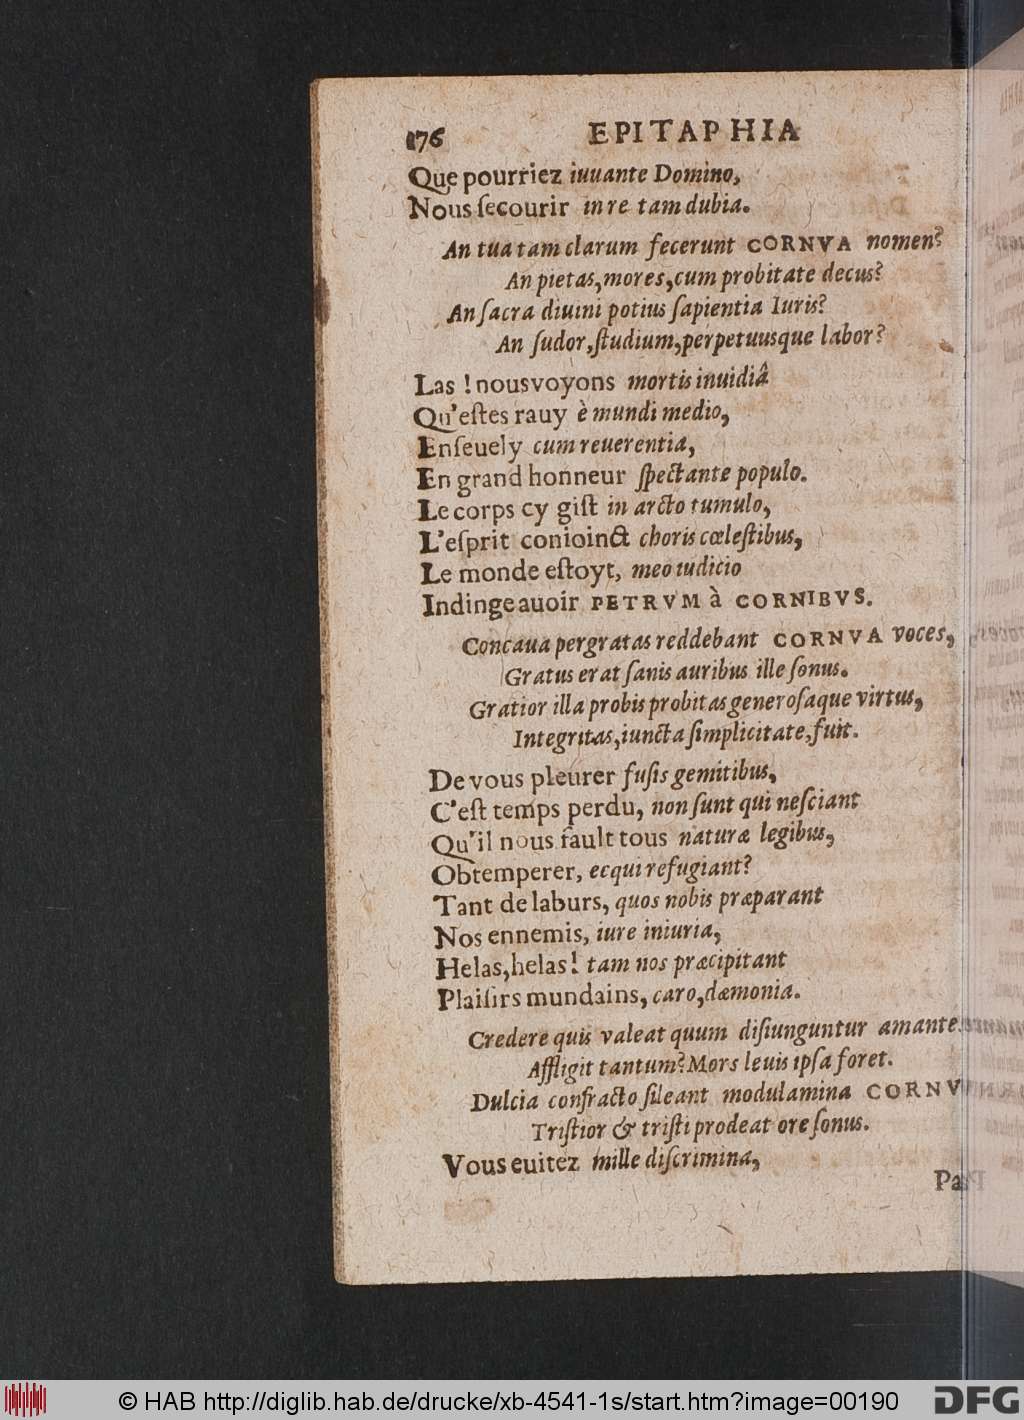 176 EPITAPHIA
Que pourriez iuuante Domino,
Nous ſecourir in re tam dubia.
An tua tam clarum fecerunt CORNVA nomen?
An pietas, mores, cum probitate decus?
An ſacra diuini potius ſapientia Iuris?
An ſudor, ſtudium, perpetuusque labor?
Las ! nous voyons mortis inuidiâ
Qu'eſtes rauy è mundi medio,
Enſeuely cum reuerentia,
En grand honneur ſpectante populo.
Le corps cy giſt in arcto tumulo,
L'eſprit conioinct choris cœleſtibus,
Le monde eſtoyt, meo iudicio
Indinge auoir PETRVM à CORNIBVS.
Concaua pergratas reddebant CORNVA voces,
Gratus erat ſanis auribus ille ſonus.
Gratior illa probis probitas generoſaque virtus,
Integritas, iuncta ſimplicitate, fuit.
De vous pleurer fuſis gemitibus,
C'eſt temps perdu, non ſunt qui neſciant
Qu'il nous fault tous naturæ legibus,
Obtemperer, ecqui refugiant?
Tant de laburs, quos nobis præparant
Nos ennemis, iure iniuria,
Helas, helas! tam nos præcipitant
Plaiſirs mundains, caro, dæmonia.
Credere quis valeat quum diſiunguntur amante
Affligit tantum? Mors leuis ipſa foret.
Dulcia confracto ſileant modulamina CORNV
Triſtior & triſti prodeat ore ſonus.
Vous euitez mille diſcrimina,
Pa
© HAB http://diglib.hab.de/drucke/xb-4541-1s/start.htm?image=00190
DFG